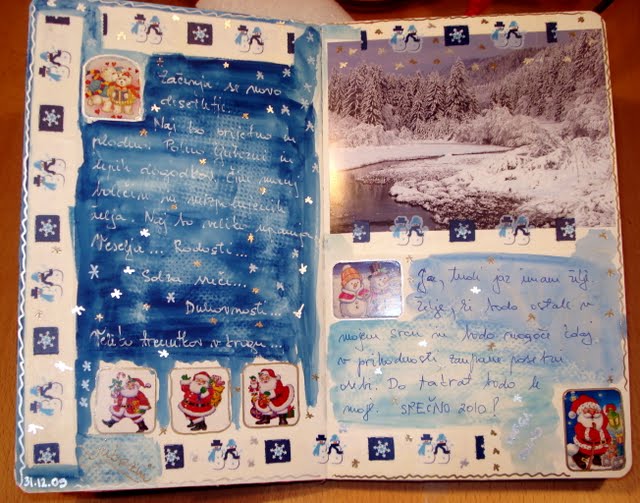 Začenja se novo
desetletje.
Naj bo prijetno in
plodno. Polno ljubezni in
lepih dogodkov. Čim manj
bolečin in neizpolnjenih
želja. Naj bo veliko upanja
Veselja... Radosti...
Solza sreče...
Duhovnosti...
trenutkov v krogu...
31.12.09
Ja, tudi jaz imam želje.
Želje, ki bodo ostale v
mojem srcu in bodo mogoče kdaj
v prihodnosti zaupane posebni
osebi. Do takrat bodo le
moje. SREČNO 2010!